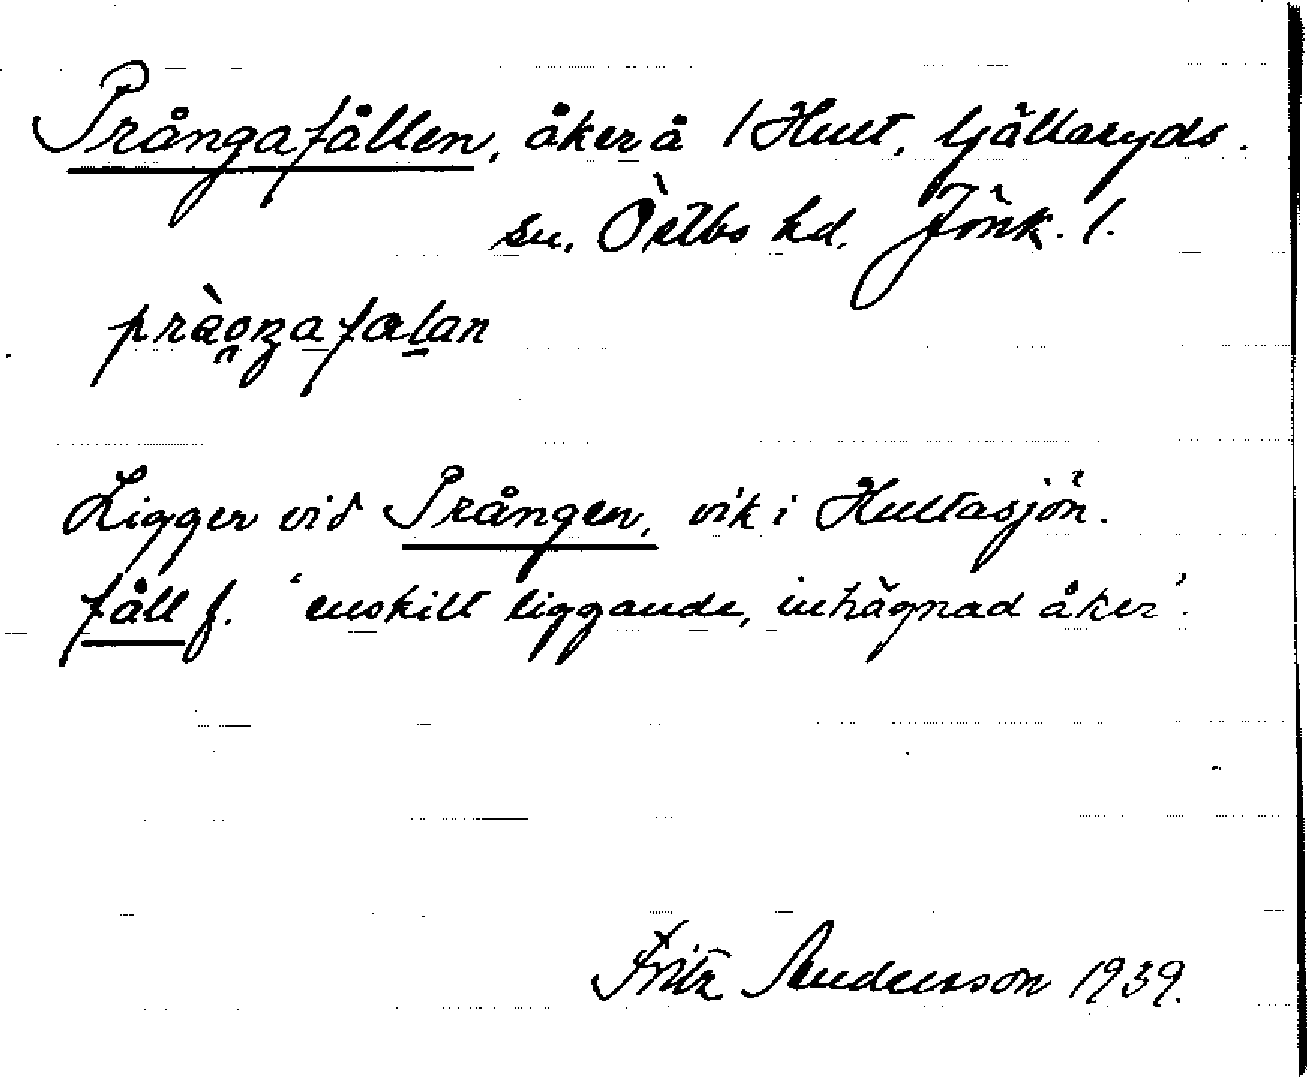 Prångafållen, åker å /Hult, Gällaryds.
sn. Östbo hd. Jönk. l.
Ligger vid Prången, vik i Hultasjön.
fåll f. 'enskilt liggande, inhägnad åker'.
Fritz Andersson 1939.